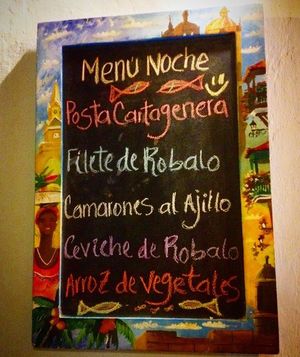 Menu Noche
Posta Cartagenera
Filete de Robalo
Camarones al Ajillo
Ceviche de Robalo
Arroz de vegetales